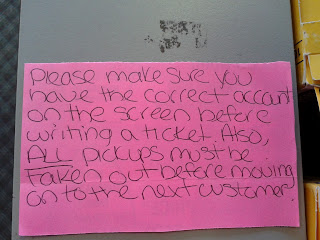 Please make sure you
have the correct account
on the screen before
writing a ticket. Also,
ALL pickups must be
Faken out before moving
on to the next customer.